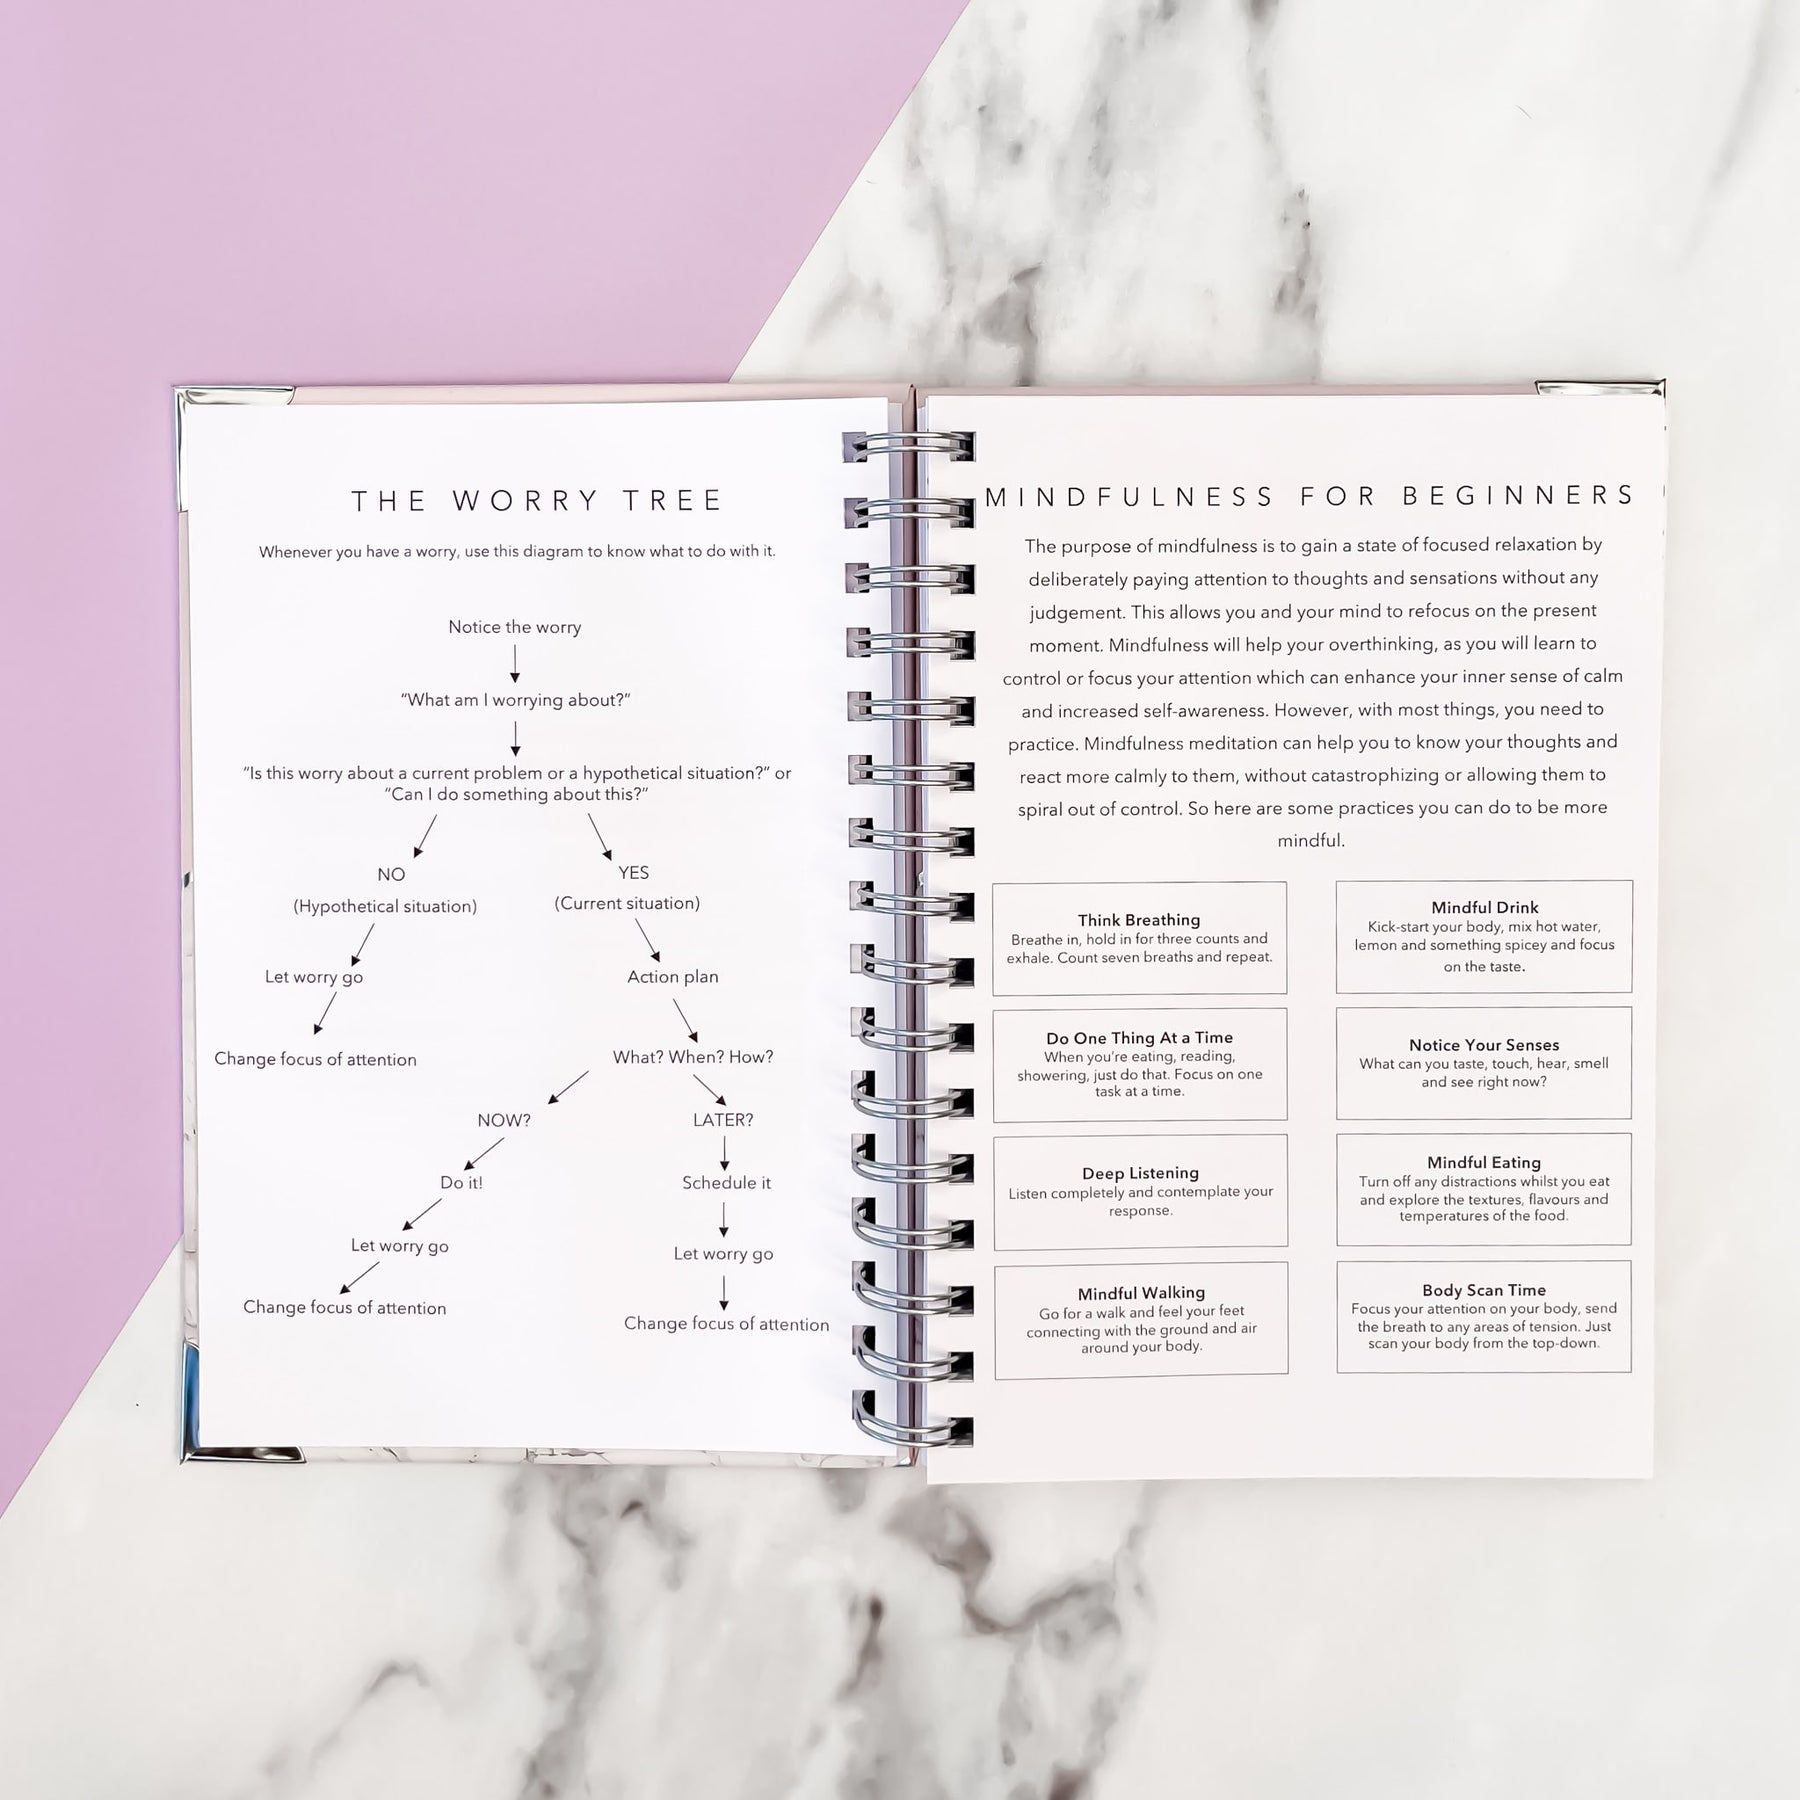 THE WORRY TREE
Whenever you have a worry, use this diagram to know what to do with it.
Notice the worry
“What am I worrying about?”
“Is this worry about a current problem or a hypothetical situation?” or
“Can I do something about this?”
NO
YES
(Hypothetical situation)
(Current situation)
Let worry go
Action plan
Change focus of attention
What? When? How?
NOW?
LATER?
Do it!
Schedule it
Let worry go
Let worry go
Change focus of attention
Change focus of attention
MINDFULNESS FOR BEGINNERS
The purpose of mindfulness is to gain a state of focused relaxation by
deliberately paying attention to thoughts and sensations without any
judgement. This allows you and your mind to refocus on the present
moment. Mindfulness will help your overthinking, as you will learn to
control or focus your attention which can enhance your inner sense of calm
and increased self-awareness. However, with most things, you need to
practice. Mindfulness meditation can help you to know your thoughts and
react more calmly to them, without catastrophizing or allowing them to
spiral out of control. So here are some practices you can do to be more
mindful.
Think Breathing
Breathe in, hold in for three counts and
exhale. Count seven breaths and repeat.
Mindful Drink
Kick-start your body, mix hot water,
lemon and something spicey and focus
on the taste.
Do One Thing At a Time
When you're eating, reading,
showering, just do that. Focus on one
task at a time.
Notice Your Senses
What can you taste, touch, hear, smell
and see right now?
Deep Listening
Listen completely and contemplate your
response.
Mindful Eating
Turn off any distractions whilst you eat
and explore the textures, flavours and
temperatures of the food.
Mindful Walking
Go for a walk and feel your feet
connecting with the ground and air
around your body.
Body Scan Time
Focus your attention on your body, send
the breath to any areas of tension. Just
scan your body from the top-down.